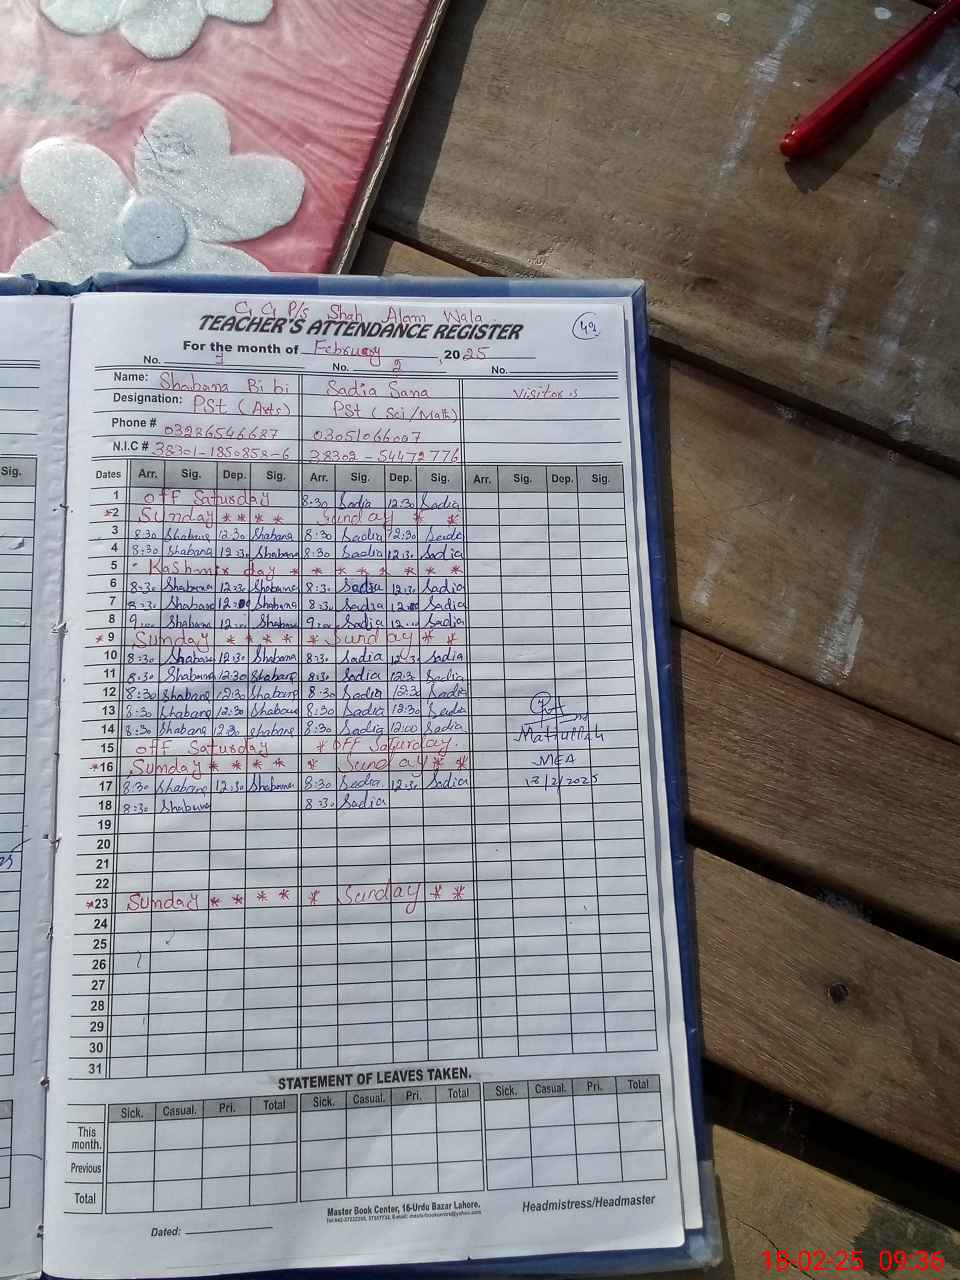 G G P/s Shah Alam Wala
TEACHER'S ATTENDANCE REGISTER
49
For the month of February, 2025
No. 1 No. 2 No.
Name: Shabana Bi bi Sadia Sana Visitor's
Designation: PSt (Arts) PSt (Sci/Math)
Phone # 03286546687 03051066007
N.I.C # 38301-1850858-6 38302-54472776
Sig.
Dates Arr. Sig. Dep. Sig. Arr. Sig. Dep. Sig. Arr. Sig. Dep. Sig.
1 off Saturday 8:30 Sadia 12:30 Sadia
*2 Sunday **** Sunday * *
3 8:30 Shabana 12:30 Shabana 8:30 Sadia 12:30 Sadia
4 8:30 Shabana 12:30 Shabana 8:30 Sadia 12:30 Sadia
5 Kashmir day * * * * * * *
6 8:30 Shabana 12:30 Shabana 8:30 Sadia 12:30 Sadia
7 8:30 Shabana 12:00 Shabana 8:30 Sadia 12:00 Sadia
8 9:00 Shabana 12:00 Shabana 9:00 Sadia 12:00 Sadia
*9 Sunday * * * * * Sunday * *
10 8:30 Shabana 12:30 Shabana 8:30 Sadia 12:30 Sadia
11 8:30 Shabana 12:30 Shabana 8:30 Sadia 12:30 Sadia
12 8:30 Shabana 12:30 Shabana 8:30 Sadia 12:30 Sadia
13 8:30 Shabana 12:30 Shabana 8:30 Sadia 12:30 Sadia
14 8:30 Shabana 12:30 Shabana 8:30 Sadia 12:00 Sadia
Matiullah
15 off Saturday * OFF Saturday.
*16 Sunday * * * * * Sunday * *
MEA
17 8:30 Shabana 12:30 Shabana 8:30 Sadia 12:30 Sadia
18/2/2025
18 8:30 Shabana 8:30 Sadia
19
20
21
22
*23 Sunday * * * * * Sunday * *
24
25
26
27
28
29
30
31
STATEMENT OF LEAVES TAKEN.
Sick. Casual. Pri. Total Sick. Casual. Pri. Total Sick. Casual. Pri. Total
This month.
Previous
Total
Master Book Center, 16-Urdu Bazar Lahore.
Headmistress/Headmaster
Dated:
18-02-25 09:36